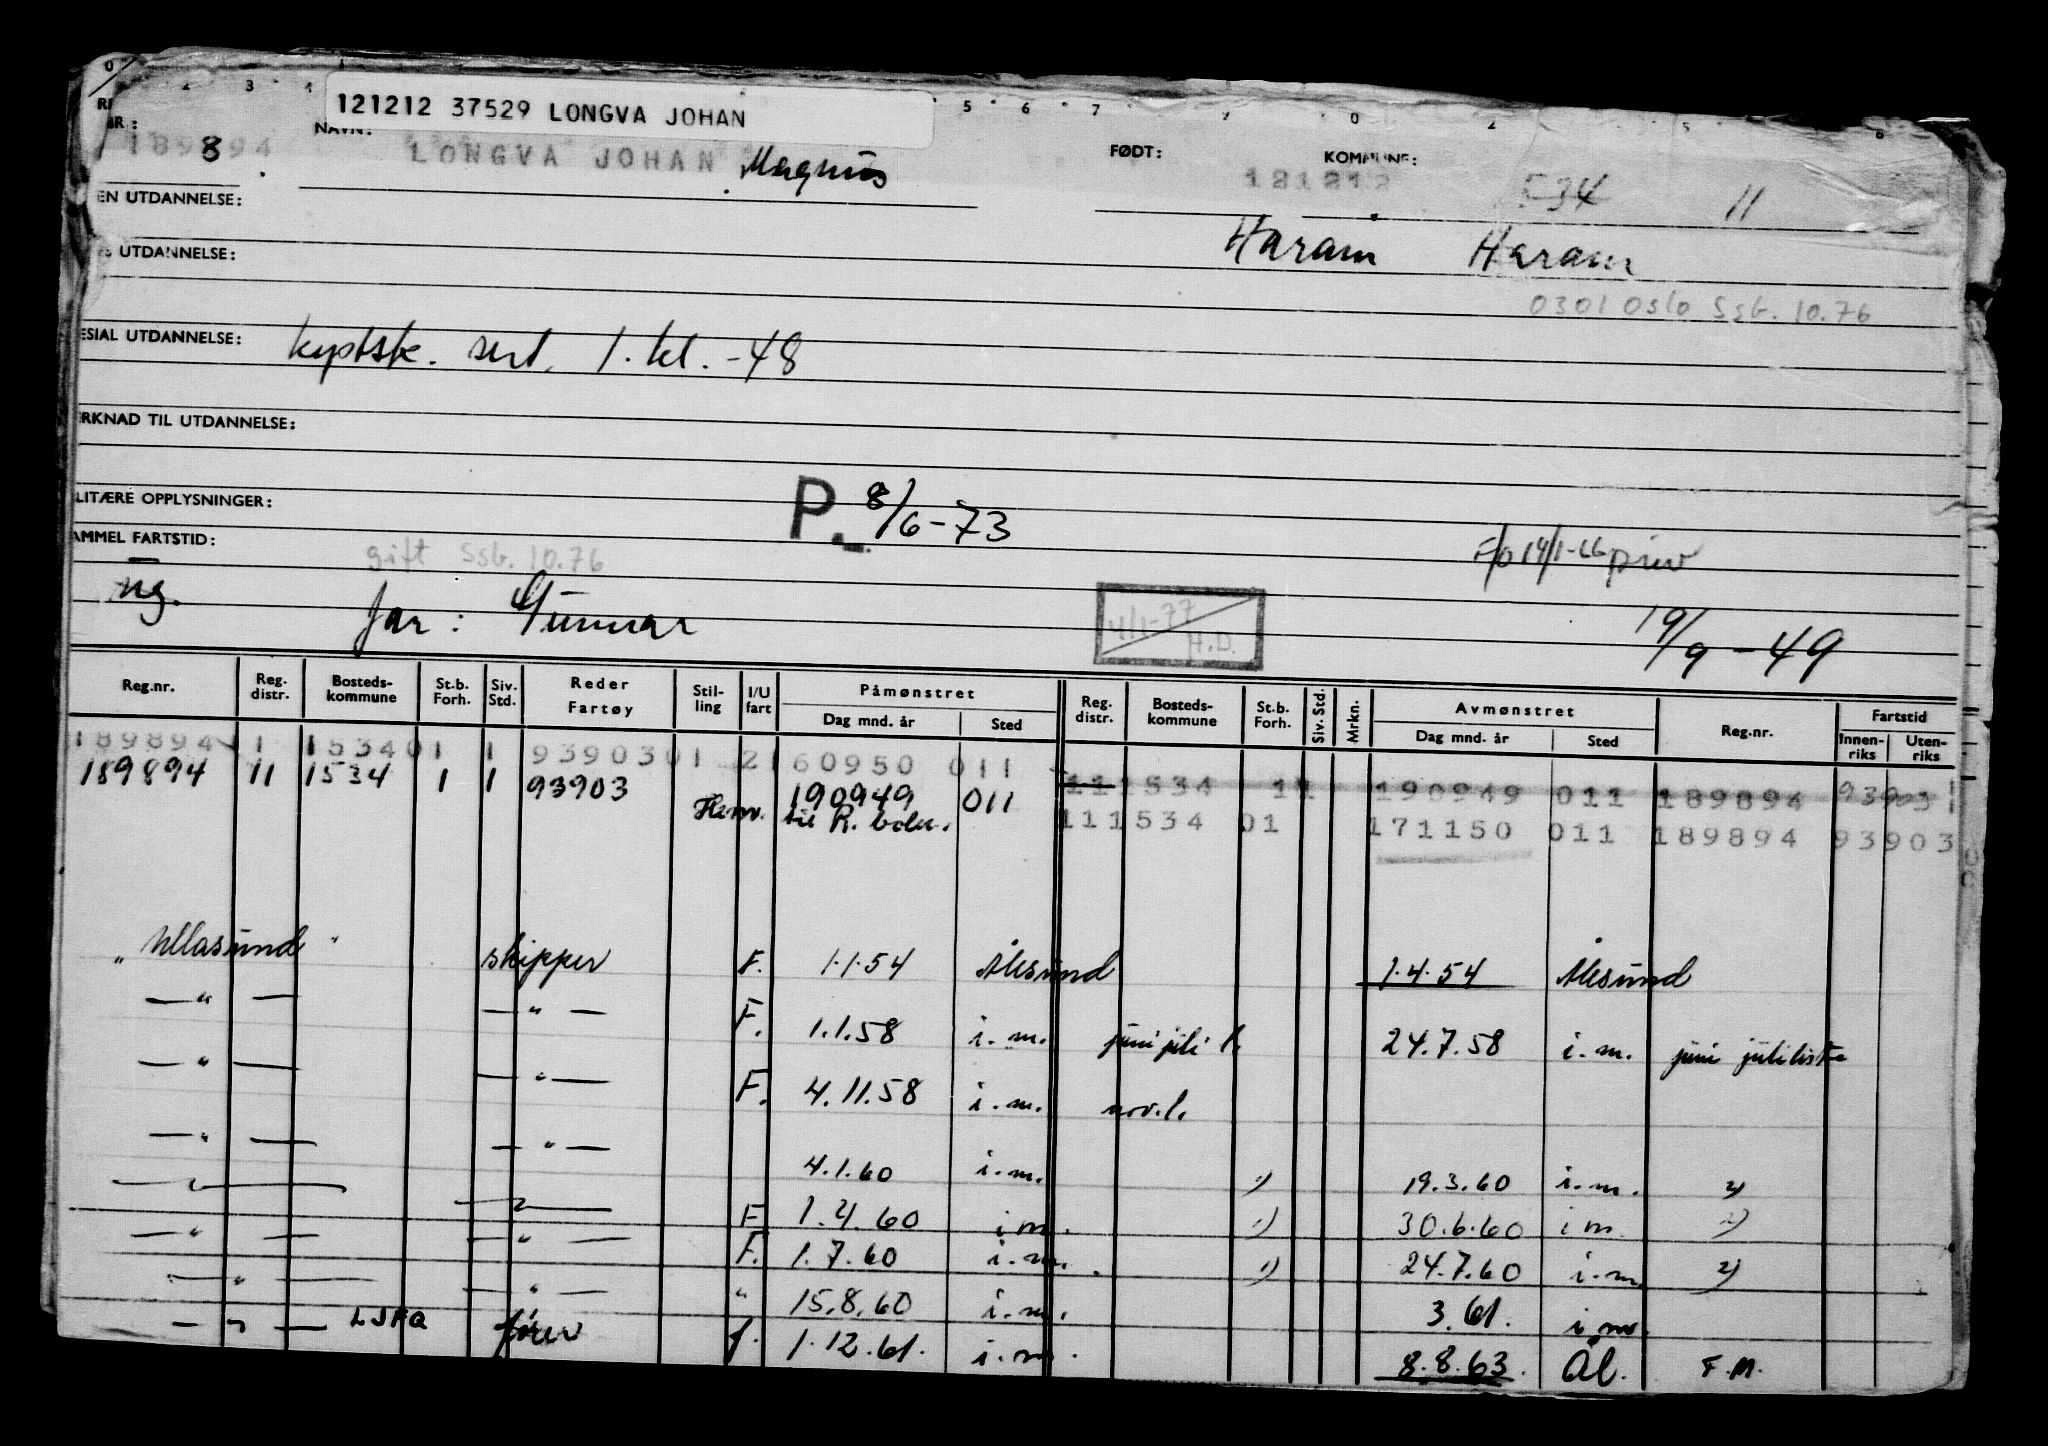 121212 37529 LONGVA JOHAN
NAVN:
189894 8 LONGVA JOHAN Magnus FØDT: 121212 KOMMUNE: 34 11
EN UTDANNELSE:
Haram Haram
UTDANNELSE:
0301 Oslo Ssb. 10.76
ESIAL UTDANNELSE: kystsk. sert. 1. kl. -48
ERKNAD TIL UTDANNELSE:
LITÆRE OPPLYSNINGER: P. 8/6-73
AMMEL FARTSTID: gift Ssb. 10.76 F/O 14/1-66 priv
ng. far: Gunnar 4/1-77 H.D. 19/9-49
Reg.nr. Reg. distr. Bosteds- kommune St.b. Forh. Siv. Std. Reder Fartøy Stil- ling I/U fart Påmønstret Reg. distr. Bosteds- kommune St.b. Forh. Siv. Std. Mrkn. Avmønstret Reg.nr. Fartstid
Dag mnd. år Sted Dag mnd. år Sted Innen- riks Uten- riks
189894 1 1 15340 1 1 9390301 2 160950 011
189894 11 1534 1 1 93903 190949 011 111534 11 190949 011 189894 93903 1
til R. 111534 01 171150 011 189894 93903
" Ullasund " skipper F. 1.1.54 Ålesund 1.4.54 Ålesund
— " — — " — F. 1.1.58 i.m. juni juli l. 24.7.58 i.m. juni juliliste
— " — — " — F. 4.11.58 i.m. nov.l.
— " — — " — 4.1.60 i.m. 1) 19.3.60 i.m. 2)
— " — — " — F 1.4.60 i m. 1) 30.6.60 i m 2)
— " — — " — F. 1.7.60 i.m. 1) 24.7.60 i.m. 2)
— " — — " — " 15.8.60 i.m. 3.61. i m.
— " — LJFQ fører f. 1.12.61. i.m. 8.8.63. Ål. F.M.